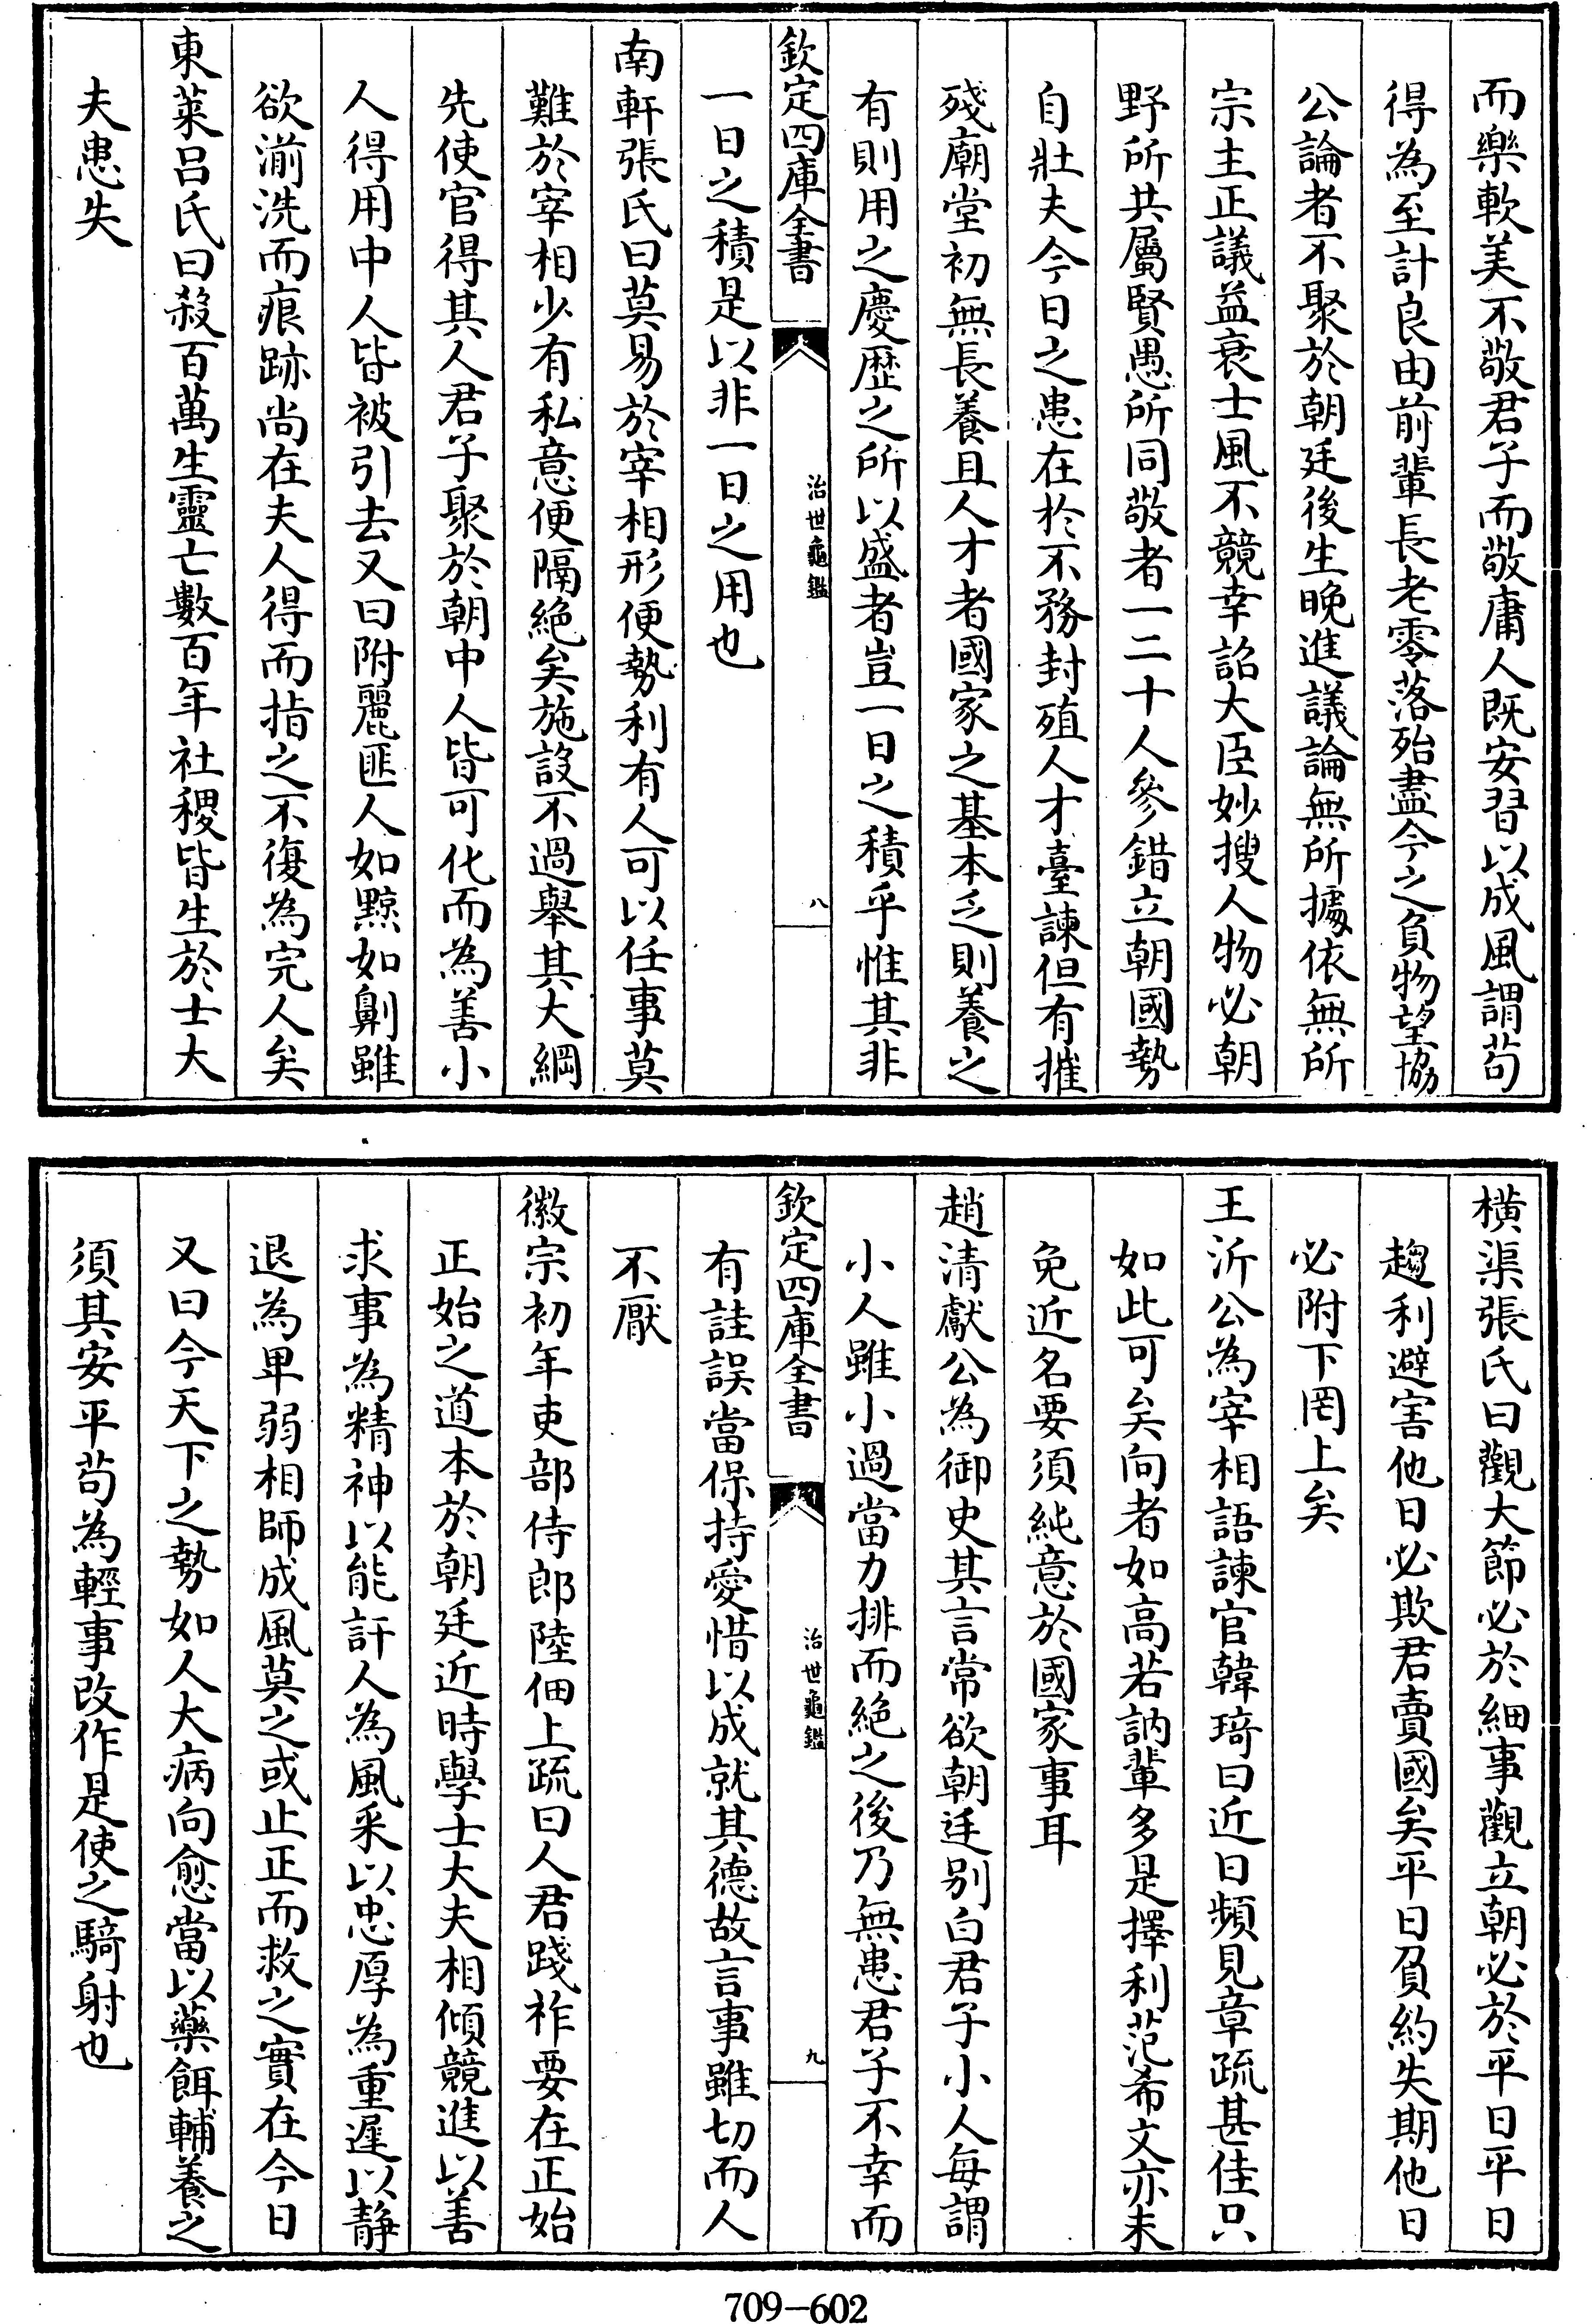 而樂軟美不敬君子而敬庸人既安習以成風謂苟
得為至計良由前輩長老零落殆盡今之負物望協
公論者不聚於朝廷後生晚進議論無所據依無所
宗主正議益衰士風不競幸詔大臣妙搜人物必朝
野所共屬賢愚所同敬者一二十人參錯立朝國勢
自壯夫今日之患在於不務封殖人才臺諫但有摧
殘廟堂初無長養且人才者國家之基本乏則養之
有則用之慶歴之所以盛者豈一日之積乎惟其非
欽定四庫全書
治世龜鑑
八
一日之積是以非一日之用也
南軒張氏曰莫易於宰相形便勢利有人可以任事莫
難於宰相少有私意便隔絶矣施設不過舉其大綱
先使官得其人君子聚於朝中人皆可化而為善小
人得用中人皆被引去又曰附麗匪人如黥如劓雖
欲湔洗而痕跡尚在夫人得而指之不復為完人矣
東萊吕氏曰殺百萬生靈亡數百年社稷皆生於士大
夫患失
橫渠張氏曰觀大節必於細事觀立朝必於平日平日
趨利避害他日必欺君賣國矣平日負約失期他日
必附下罔上矣
王沂公為宰相語諫官韓琦曰近日頻見章疏甚佳只
如此可矣向者如高若訥輩多是擇利范希文亦未
免近名要須純意於國家事耳
趙清獻公為御史其言常欲朝廷别白君子小人每謂
小人雖小過當力排而絶之後乃無患君子不幸而
欽定四庫全書
治世龜鑑
九
有詿誤當保持愛惜以成就其德故言事雖切而人
不厭
徽宗初年吏部侍郎陸佃上疏曰人君踐祚要在正始
正始之道本於朝廷近時學士大夫相傾競進以善
求事為精神以能訐人為風采以忠厚為重遲以靜
退為卑弱相師成風莫之或止正而救之實在今日
又曰今天下之勢如人大病向愈當以藥餌輔養之
須其安平苟為輕事改作是使之騎射也
709-602